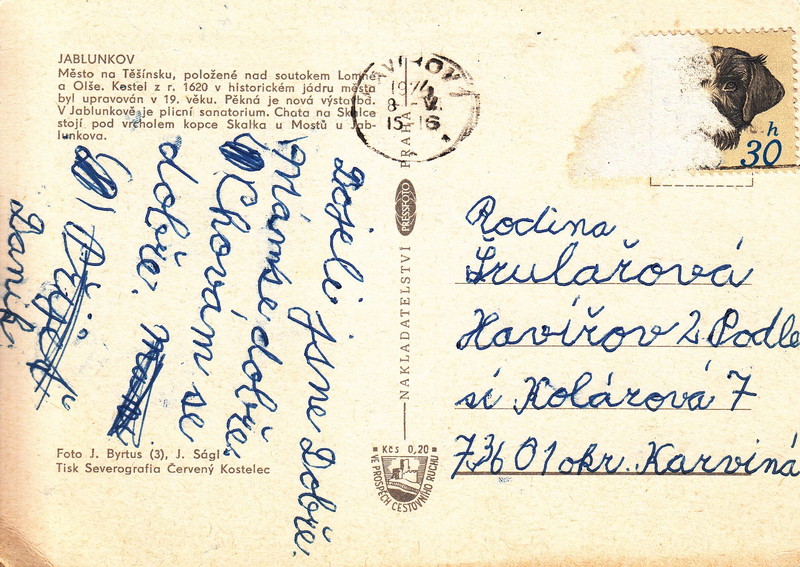 JABLUNKOV
Město na Těšínsku, položené nad soutokem Lomné
a Olše. Kostel z r. 1620 v historickém jádru města
byl upravován v 19. věku. Pěkná je nová výstavba.
V Jablunkově je plicní sanatorium. Chata na Skalce
stojí pod vrcholem kopce Skalka u Mostů u Jab-
lunkova.
Dojeli jsne Dobře.
Mámse dobře
Chovám se
dobře.
Daník
Foto J. Byrtus (3), J. Ságl
Tisk Severografia Červený Kostelec
NAKLADATELSTVÍ PRESSFOTO PRAHA
Kčs 0,20
VE PROSPĚCH CESTOVNÍHO RUCHU
15-16
h
30
Rodina
Šrulařová
Havířov 2 Podle
sí Kolárová 7
73601 okr. Karviná